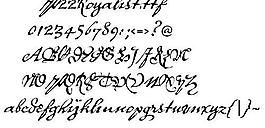 P22Royalist.ttf
0123456789:;<=>?@
ABCDEFGHIJKLM
NOPQRSTUVWXYZ
abcdefghijklmnopqrstuvwxyz{\}~